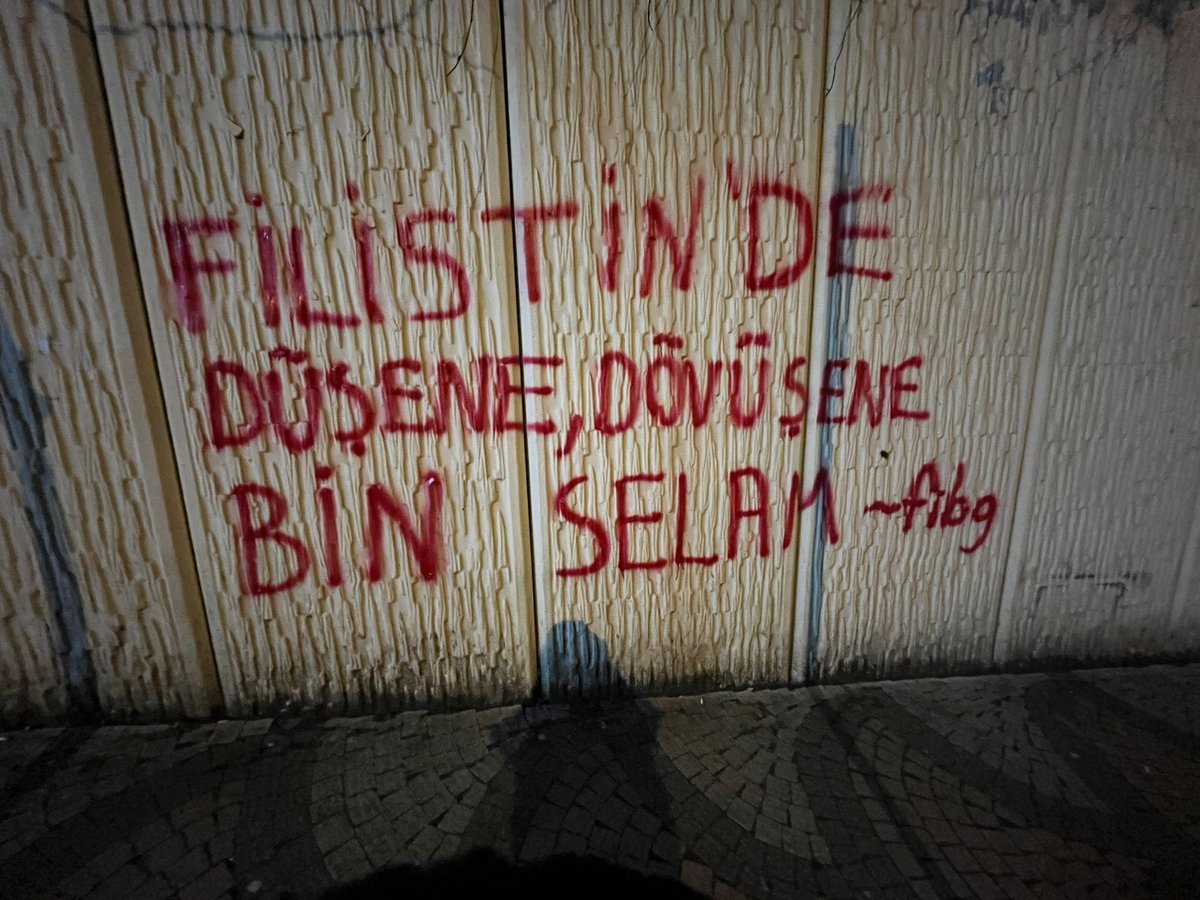 FİLİSTİN'DE
DÜŞENE, DÖVÜŞENE
BİN SELAM ~fibg